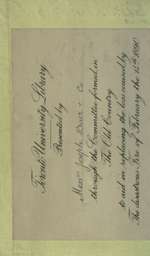 Toronto University Library
Presented by
Messrs Joseph, Baer & Co
through the Committee formed in
The Old Country
to aid in replacing the loss caused by
The disastrous Fire of February the 14th 1890